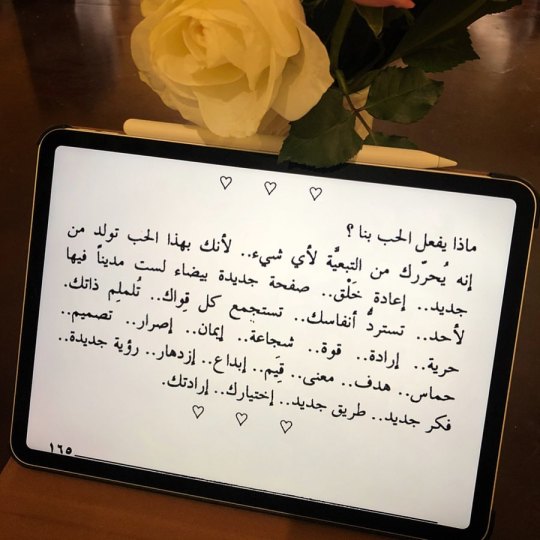 ♡ ♡ ♡
ماذا يفعل الحب بنا ؟
إنه يُحرّرك من التبعيَّة لأي شيء.. لأنك بهذا الحب تولد من
جديد.. إعادة خَلْق.. صفحة جديدة بيضاء لست مديناً فيها
لأحد.. تستردُّ أنفاسك.. تستجمع كل قِواك.. تُلملِم ذاتك.
حرية.. إرادة.. قوة.. شجاعة.. إيمان.. إصرار.. تصميم..
حماس.. هدف.. معنى.. قِيَم.. إبداع.. إزدهار.. رؤية جديدة..
فكر جديد.. طريق جديد.. إختيارك.. إرادتك.
♡ ♡ ♡
١٦٥